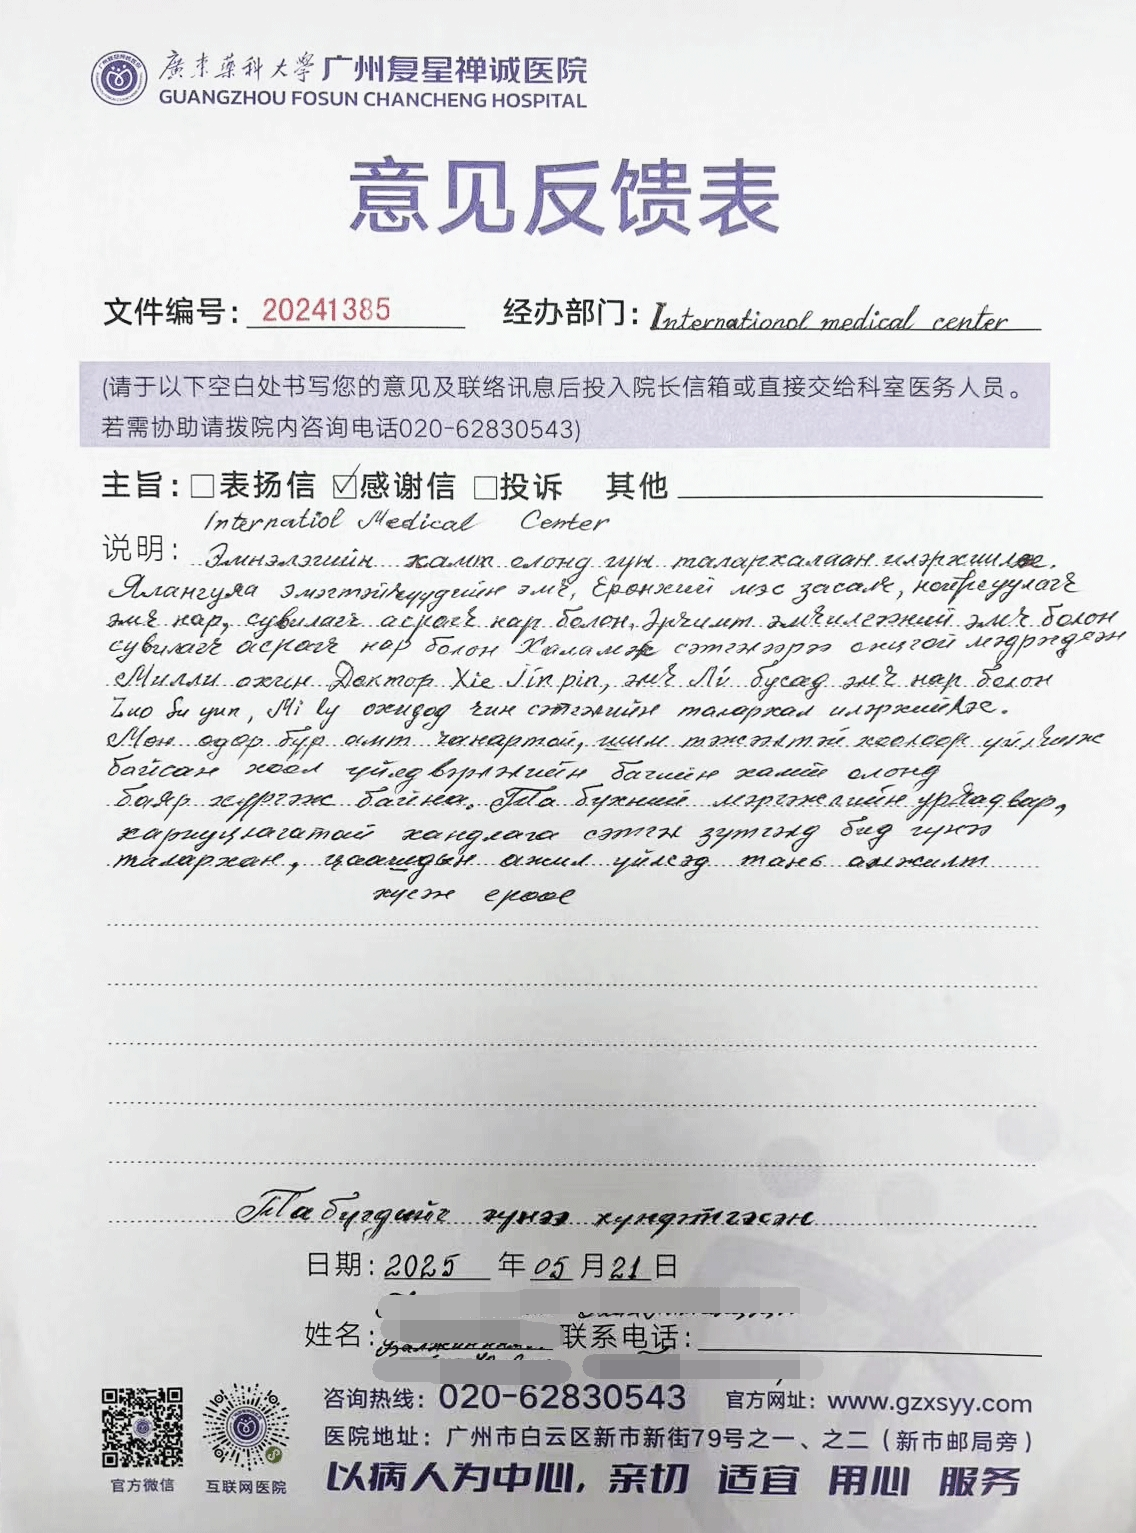 廣东药科大学 广州复星禅诚医院
GUANGZHOU FOSUN CHANCHENG HOSPITAL
意见反馈表
文件编号: 20241385 经办部门: International medical center
(请于以下空白处书写您的意见及联络讯息后投入院长信箱或直接交给科室医务人员。
若需协助请拨院内咨询电话020-62830543)
主旨: □表扬信 ☑感谢信 □投诉 其他
Internatiol Medical Center
说明: Эмнэлэгийн хамт олонд гүн талархалаан илэрхийлье.
Ялангуяа эмэгтэйчүүдийн эмч, Ерөнхий мэс засалч, нойрсуулагч
эмч нар, сувилагч асрагч нар болон. Эрчимт эмчилгээний эмч болон
сувилагч асрагч нар болон Халамж сэтгэлээрээ онцгой
Милли охин Доктор Xie Jin pin, эмч Лі бусад эмч нар болон
Zuo Su yun, Mi ly охидод чин сэтгэлийн талархал илэрхийлье.
Мөн өдөр бүр амт чанартай, шим тэжээлтэй хоолоор үйлчилж
байсан хоол үйлдвэрлэлийн багийн хамт олонд
баяр хүргэж байна. Та бүхний мэргэжлийн ур чадвар,
хариуцлагатай хандлага сэтгэл зүтгэлд бид гүнээ
талархан, цаашдын ажил үйлсэд тань амжилт
хүсэж ерөөе
Та бүгдийг гүнээ хүндэтгэсэн
日期: 2025 年 05 月 21 日
姓名: 联系电话:
咨询热线: 020-62830543 官方网址: www.gzxsyy.com
医院地址: 广州市白云区新市新街79号之一、之二（新市邮局旁）
官方微信 互联网医院 以病人为中心, 亲切 适宜 用心 服务